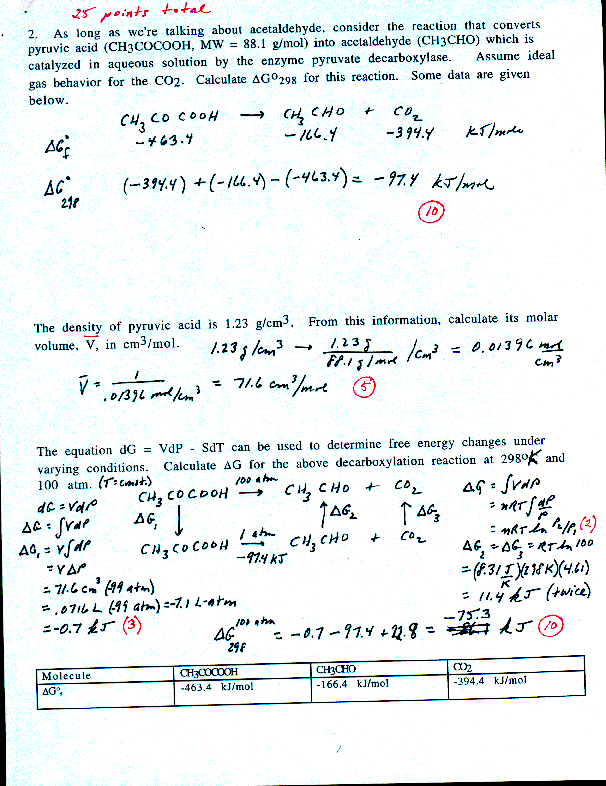 25 points total
2. As long as we're talking about acetaldehyde, consider the reaction that converts
pyruvic acid (CH3COCOOH, MW = 88.1 g/mol) into acetaldehyde (CH3CHO) which is
catalyzed in aqueous solution by the enzyme pyruvate decarboxylase. Assume ideal
gas behavior for the CO2. Calculate ΔG⁰298 for this reaction. Some data are given
below.
CH3COCOOH → CH3CHO + CO2
ΔG°f -463.4 -166.4 -394.4 kJ/mole
ΔG°298 (-394.4) + (-166.4) - (-463.4) = -97.4 kJ/mol
10
The density of pyruvic acid is 1.23 g/cm3. From this information, calculate its molar
volume, V̅, in cm3/mol. 1.23 g/cm3 → 1.23 g / 88.1 g/mole /cm3 = 0.01396 mol/cm3
V̅ = 1 / .01396 mol/cm3 = 71.6 cm3/mole 5
The equation dG = VdP - SdT can be used to determine free energy changes under
varying conditions. Calculate ΔG for the above decarboxylation reaction at 298°K and
100 atm. (T=const.)
CH3COCOOH 100 atm → CH3CHO + CO2 ΔG = ∫VdP
dG = VdP
ΔG = ∫VdP ΔG1 ↓ ↑ΔG2 ↑ΔG3 = nRT∫dP/P
= nRT ln P2/P1 (2)
ΔG1 = V∫dP CH3COCOOH 1 atm → -97.4 KJ CH3CHO + CO2 ΔG2 = ΔG3 = RT ln 100
= VΔP = (8.31 J/K)(298K)(4.61)
= 71.6 cm3 (99 atm) = 11.4 kJ (twice)
= .0716 L (99 atm) = -7.1 L-atm
= -0.7 kJ (3)
ΔG 100 atm 298 = -0.7 - 97.4 + 22.8 = -75.3 kJ 10
Molecule CH3COCOOH CH3CHO CO2
ΔG°f -463.4 kJ/mol -166.4 kJ/mol -394.4 kJ/mol